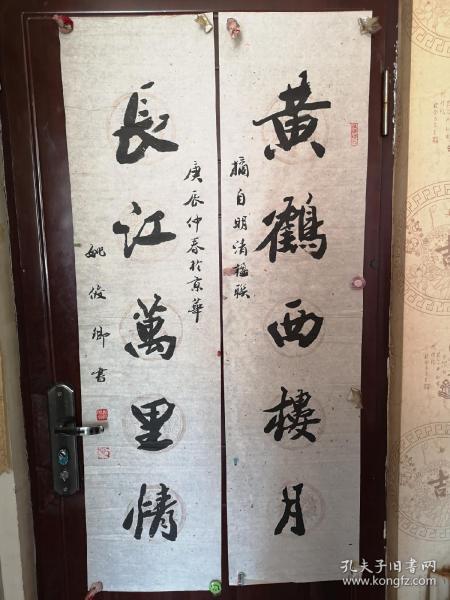 黄鶴西樓月
摘自明清楹联
長江萬里情
庚辰仲春於京華
姚俊卿書
吉
吉
孔夫子旧书网
www.kongfz.com